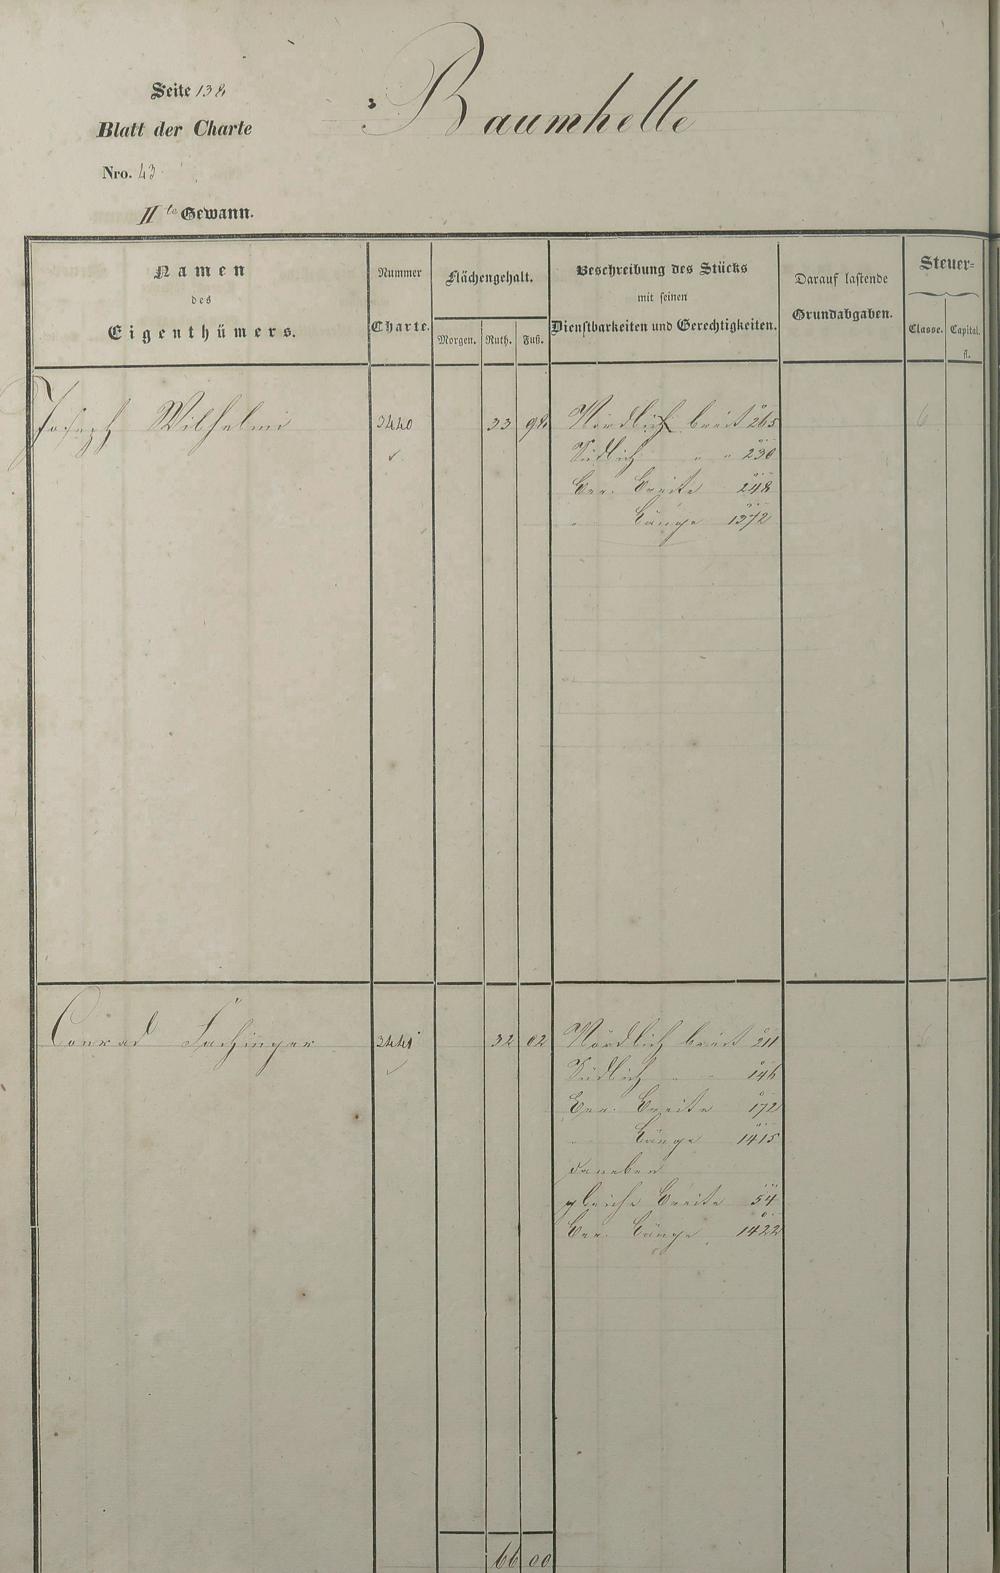 Seite 138
Baumhelle
Blatt der Charte
Nro. 43
IIte Gewann.
Namen des Eigenthümers.
Nummer Charte.
Flächengehalt.
Morgen. Ruth. Fuß.
Beschreibung des Stücks
mit seinen
Dienstbarkeiten und Gerechtigkeiten.
Darauf lastende
Grundabgaben.
Steuer=
Classe. Capital.
fl.
Joseph Wilhelmi 3440 33 98 Nördlich breit 265 6
Südlich " " 230
Ber. Breite 248
" Länge 1372
Conrad Fachinger 3441 32 02 Nördlich breit 211 6
Südlich " " 146
Ber. Breite 172
" Länge 1415
daneben
gleiche Breite 54
Ber. Länge 1422
66 00